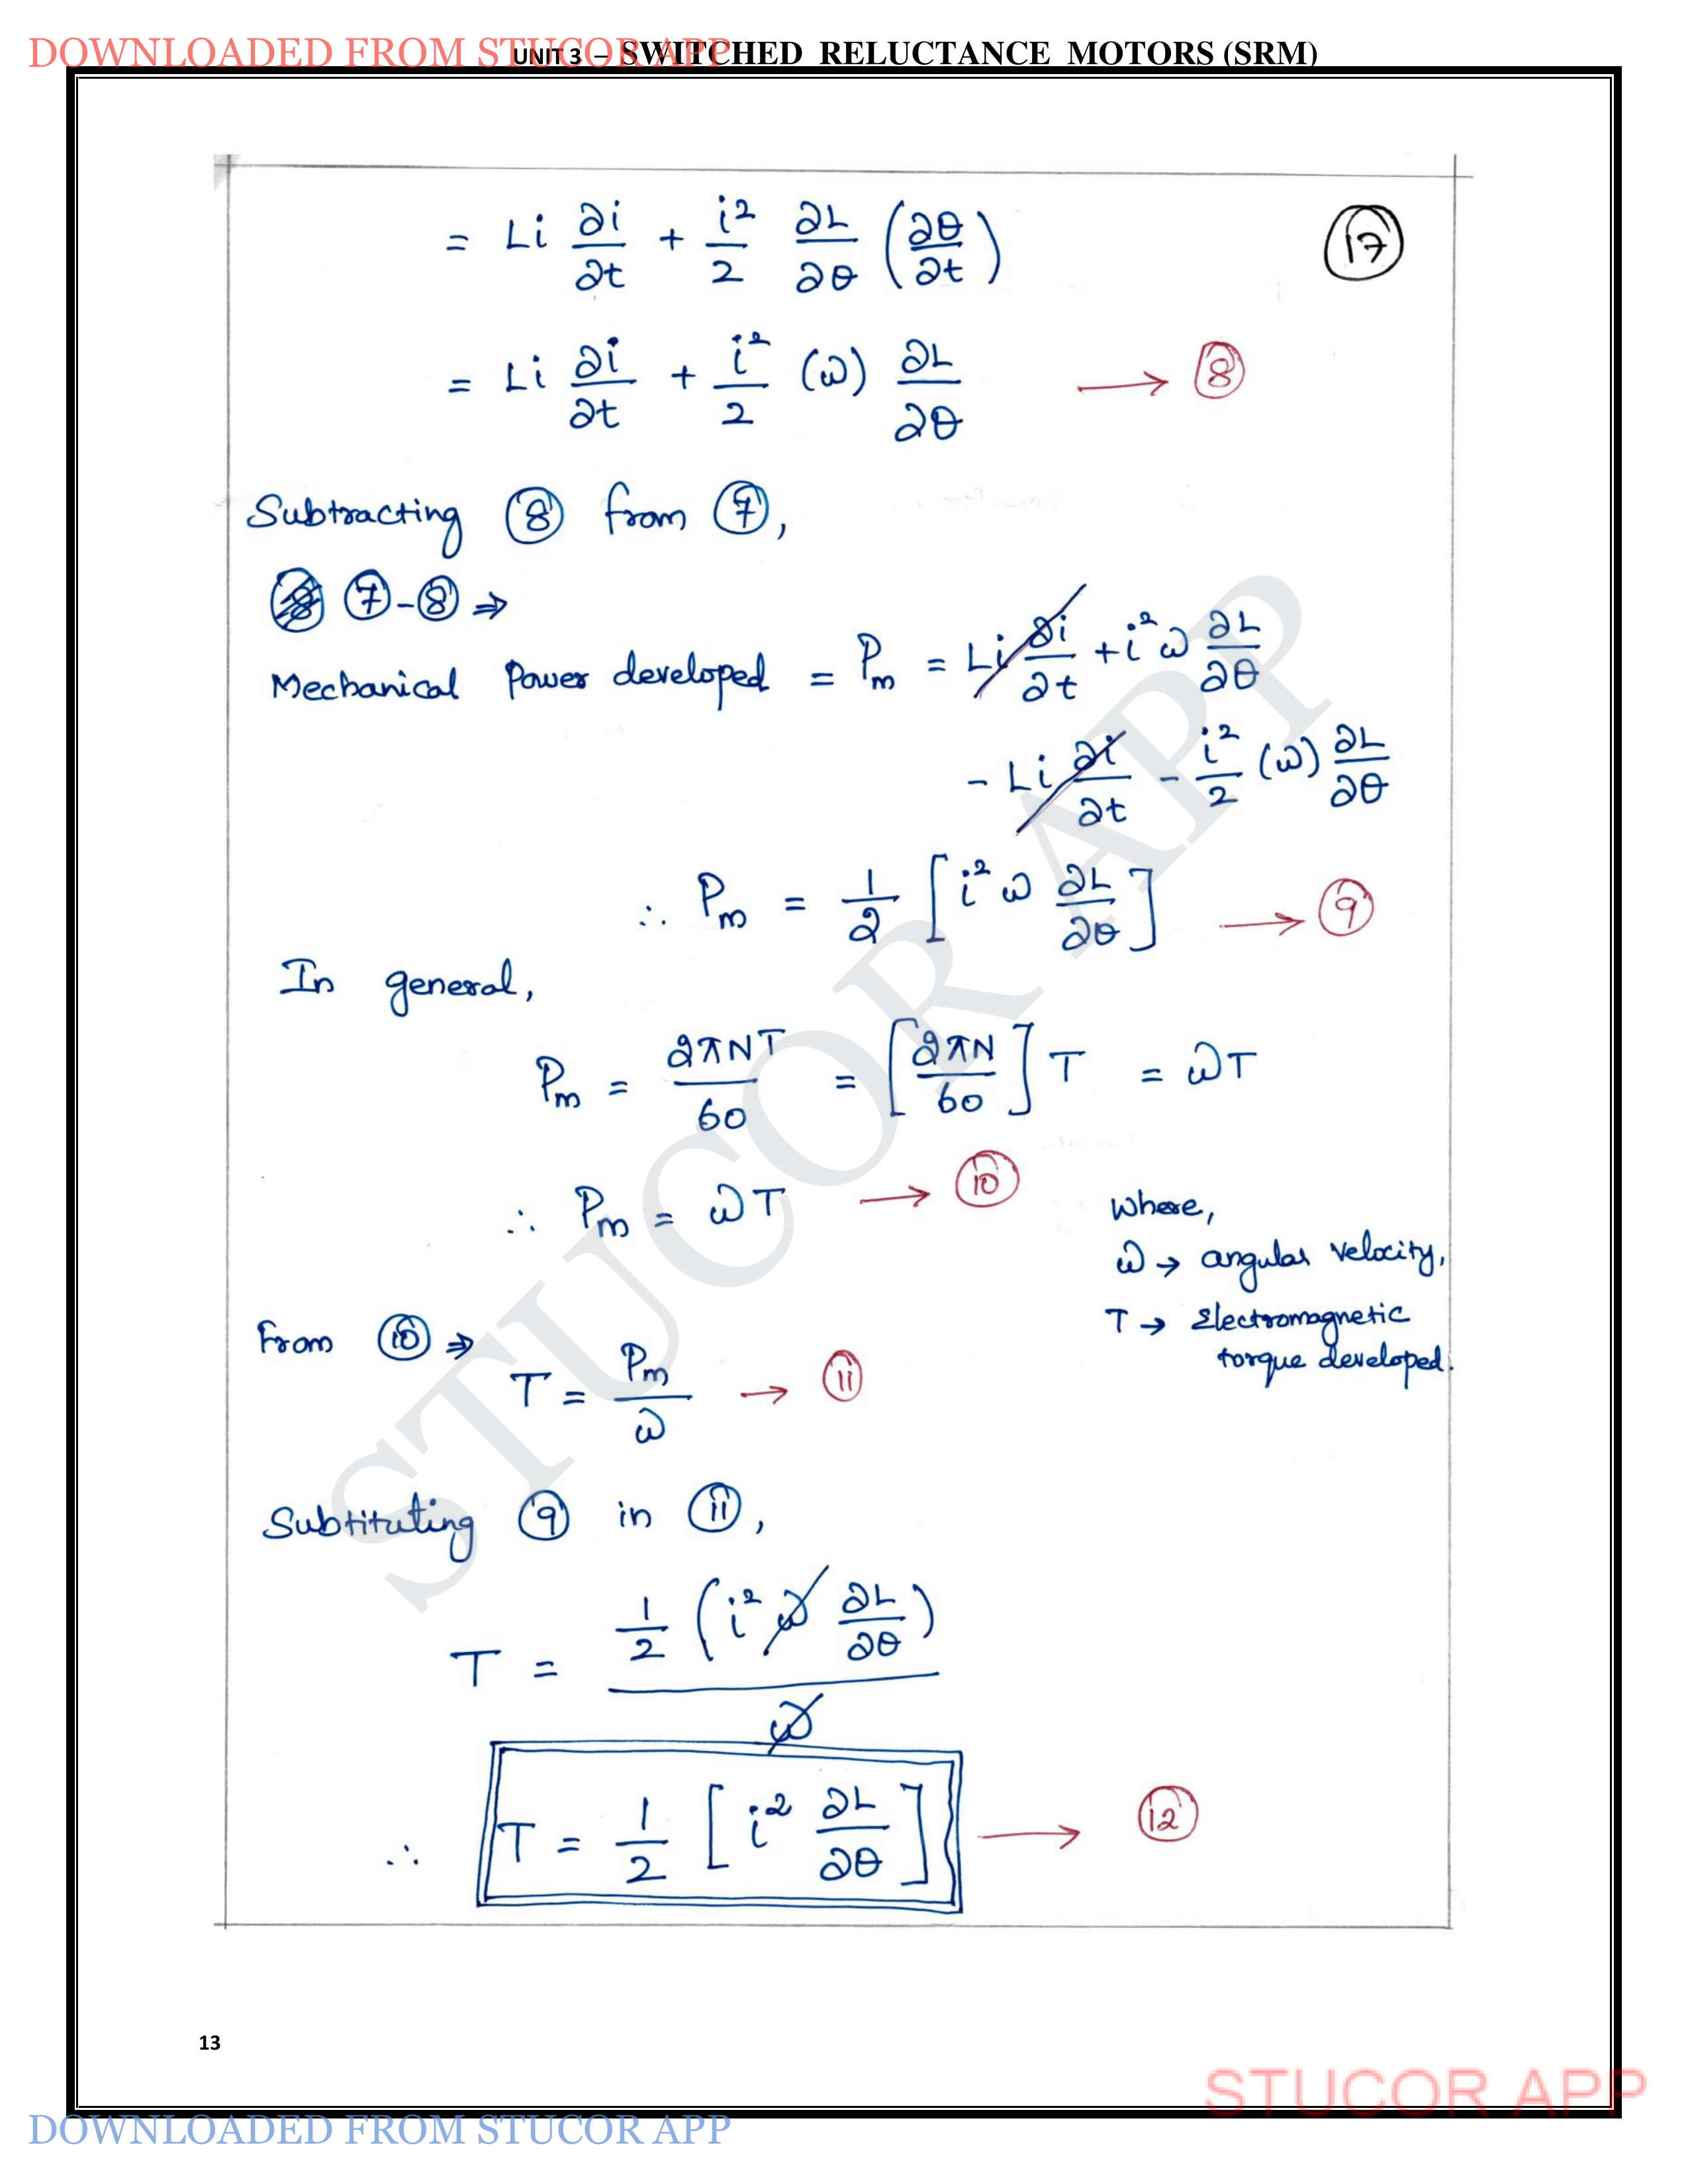 DOWNLOADED FROM STUCOR APP
UNIT 3 – SWITCHED RELUCTANCE MOTORS (SRM)
= Li ∂i/∂t + i²/2 ∂L/∂θ (∂θ/∂t)
17
= Li ∂i/∂t + i²/2 (ω) ∂L/∂θ → 8
Subtracting 8 from 7,
7 - 8 ⇒
Mechanical Power developed = Pm = Li ∂i/∂t + i² ω ∂L/∂θ
- Li ∂i/∂t - i²/2 (ω) ∂L/∂θ
∴ Pm = 1/2 [i² ω ∂L/∂θ] → 9
In general,
Pm = 2πNT/60 = [2πN/60] T = ωT
∴ Pm = ωT → 10
where,
ω → angular velocity,
T → Electromagnetic
torque developed.
From 10 ⇒
T = Pm/ω → 11
Subtituting 9 in 11,
T = 1/2 (i² ω ∂L/∂θ) / ω
∴ T = 1/2 [i² ∂L/∂θ] → 12
STUCOR APP
13
STUCOR APP
DOWNLOADED FROM STUCOR APP